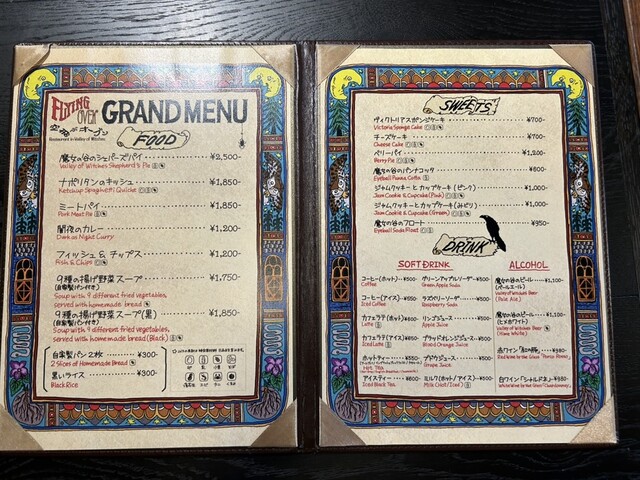 FLYING OVEN
空飛ぶオーブン
Restaurant in Valley of Witches
GRAND MENU
FOOD
魔女の谷のシェパーズパイ ¥2,500-
Valley of Witches Shepherd's Pie
ナポリタンのキッシュ ¥1,850-
Ketchup Spaghetti Quiche
ミートパイ ¥1,850-
Pork Meat Pie
闇夜のカレー ¥1,200-
Dark as Night Curry
フィッシュ & チップス ¥1,200-
Fish & Chips
9種の揚げ野菜スープ ¥1,750-
(自家製パン付き)
Soup with 9 different fried vegetables,
served with homemade bread
9種の揚げ野菜スープ(黒) ¥1,850-
(自家製パン付き)
Soup with 9 different fried vegetables,
served with homemade bread(Black)
自家製パン 2枚 ¥300-
2 Slices of Homemade Bread
黒いライス ¥300-
Black Rice
SWEETS
ヴィクトリアスポンジケーキ ¥700-
Victoria Sponge Cake
チーズケーキ ¥700-
Cheese Cake
ベリーパイ ¥1,200-
Berry Pie
魔女の谷のパンナコッタ ¥800-
Eyeball Panna Cotta
ジャムクッキーとカップケーキ(ピンク) ¥1,000-
Jam Cookie & Cupcake(Pink)
ジャムクッキーとカップケーキ(みどり) ¥1,000-
Jam Cookie & Cupcake(Green)
魔女の谷のフロート ¥950-
Eyeball Soda Float
DRINK
SOFT DRINK
コーヒー(ホット) ¥500-
Coffee
コーヒー(アイス) ¥550-
Iced Coffee
カフェラテ(ホット) ¥600-
Latte
カフェラテ(アイス) ¥650-
Iced Latte
ホットティー ¥550-
Hot Tea
アイスティー ¥550-
Iced Black Tea
グリーンアップルソーダ ¥500-
Green Apple Soda
ラズベリーソーダ ¥500-
Raspberry Soda
リンゴジュース ¥500-
Apple Juice
ブラッドオレンジジュース ¥500-
Blood Orange Juice
ブドウジュース ¥500-
Grape Juice
ミルク(ホット/アイス) ¥500-
Milk (Hot/Iced)
ALCOHOL
魔女の谷のビール ¥1,100-
(ペールエール)
Valley of Witches Beer
(Pale Ale)
魔女の谷のビール ¥1,100-
(ヒメホワイト)
Valley of Witches Beer
(Hime White)
赤ワイン
白ワイン「シャルドネ」